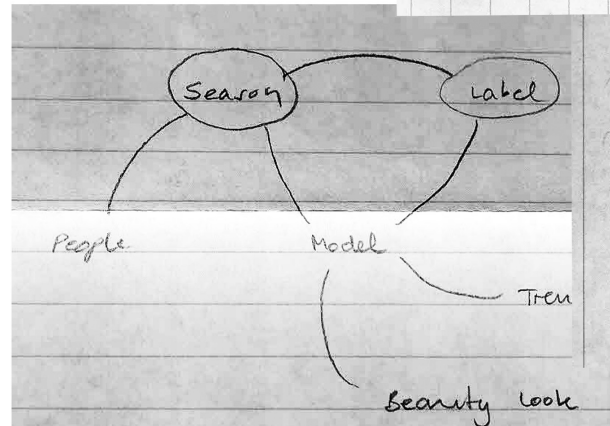 Season Label
People Model
Tren
Beauty look